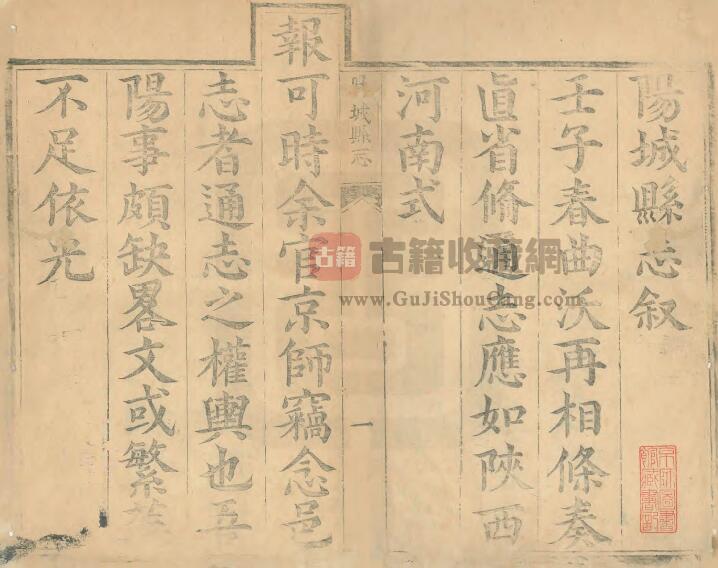 陽城縣志叙
壬子春曲沃再相條奏
直省脩通志應如陝西
河南式
城縣志
一
報可時余官京師竊念邑
志者通志之權輿也吾
陽事頗缺畧文或繁
不足依光
古籍
古籍收藏網
www.GuJiShouCang.com
京師圖書
館藏書記